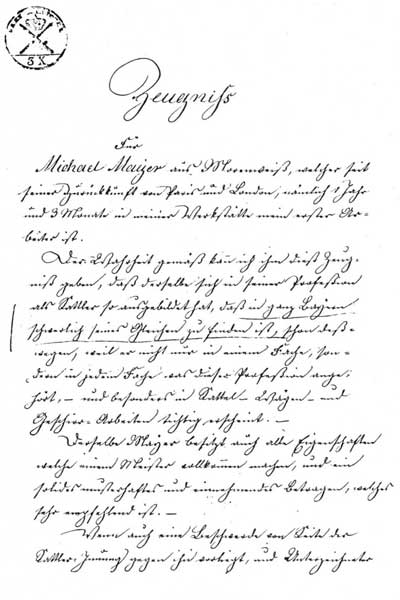 3 X
Zeugniß
Für
Michael Maizer aus Morenweiß, welcher seit
seiner Zurückkunft von Paris und London, nämlich 1 Jahr
und 3 Monate in meiner Werkstätte mein erster Ar-
beiter ist.
Der Wahrheit gemäß kan ich ihm dieß Zeug-
niß geben, daß derselbe sich in seiner Profession
als Sattler so ausgebildet hat, daß in ganz Bayern
schwerlich seines Gleichen zu finden ist, schon deß-
wegen, weil er nicht nur in einem Fache, son-
dern in jedem Fache was dieser Profession ange-
hört, – und besonders in Sattel- Wägen- und
Geschirr-Arbeiten tüchtig erscheint. –
Derselbe Maizer besitzt auch alle Eigenschaften
welche einem Meister vollkommen machen, und ein
solides musterhaftes und einnehmendes Betragen, welches
sehr empfehlend ist. –
Wenn auch eine Beschwerde von Seite der
Sattler-Innung gegen ihn vorliegt, und Unterzeichneter